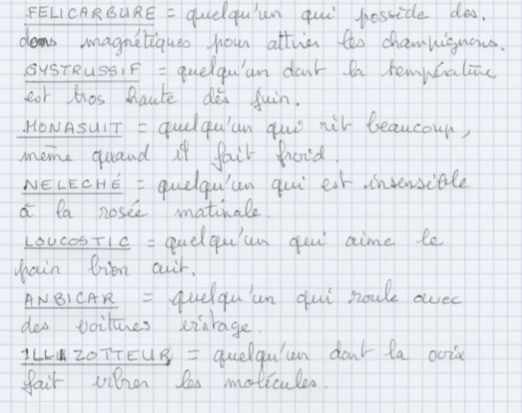 FELICARBURE = quelqu'un qui possède des
dons magnétiques pour attirer les champignons.
GYSTRUSSIF = quelqu'un dont la température
est très haute dès Juin.
MONASUIT = quelqu'un qui rit beaucoup,
même quand il fait froid.
NELECHÉ = quelqu'un qui est insensible
à la rosée matinale.
LOUCOSTIC = quelqu'un qui aime le
pain bien cuit.
ANBICAR = quelqu'un qui roule avec
des voitures vintage.
ILLUZOTTEUR = quelqu'un dont la voix
fait vibrer les molécules.